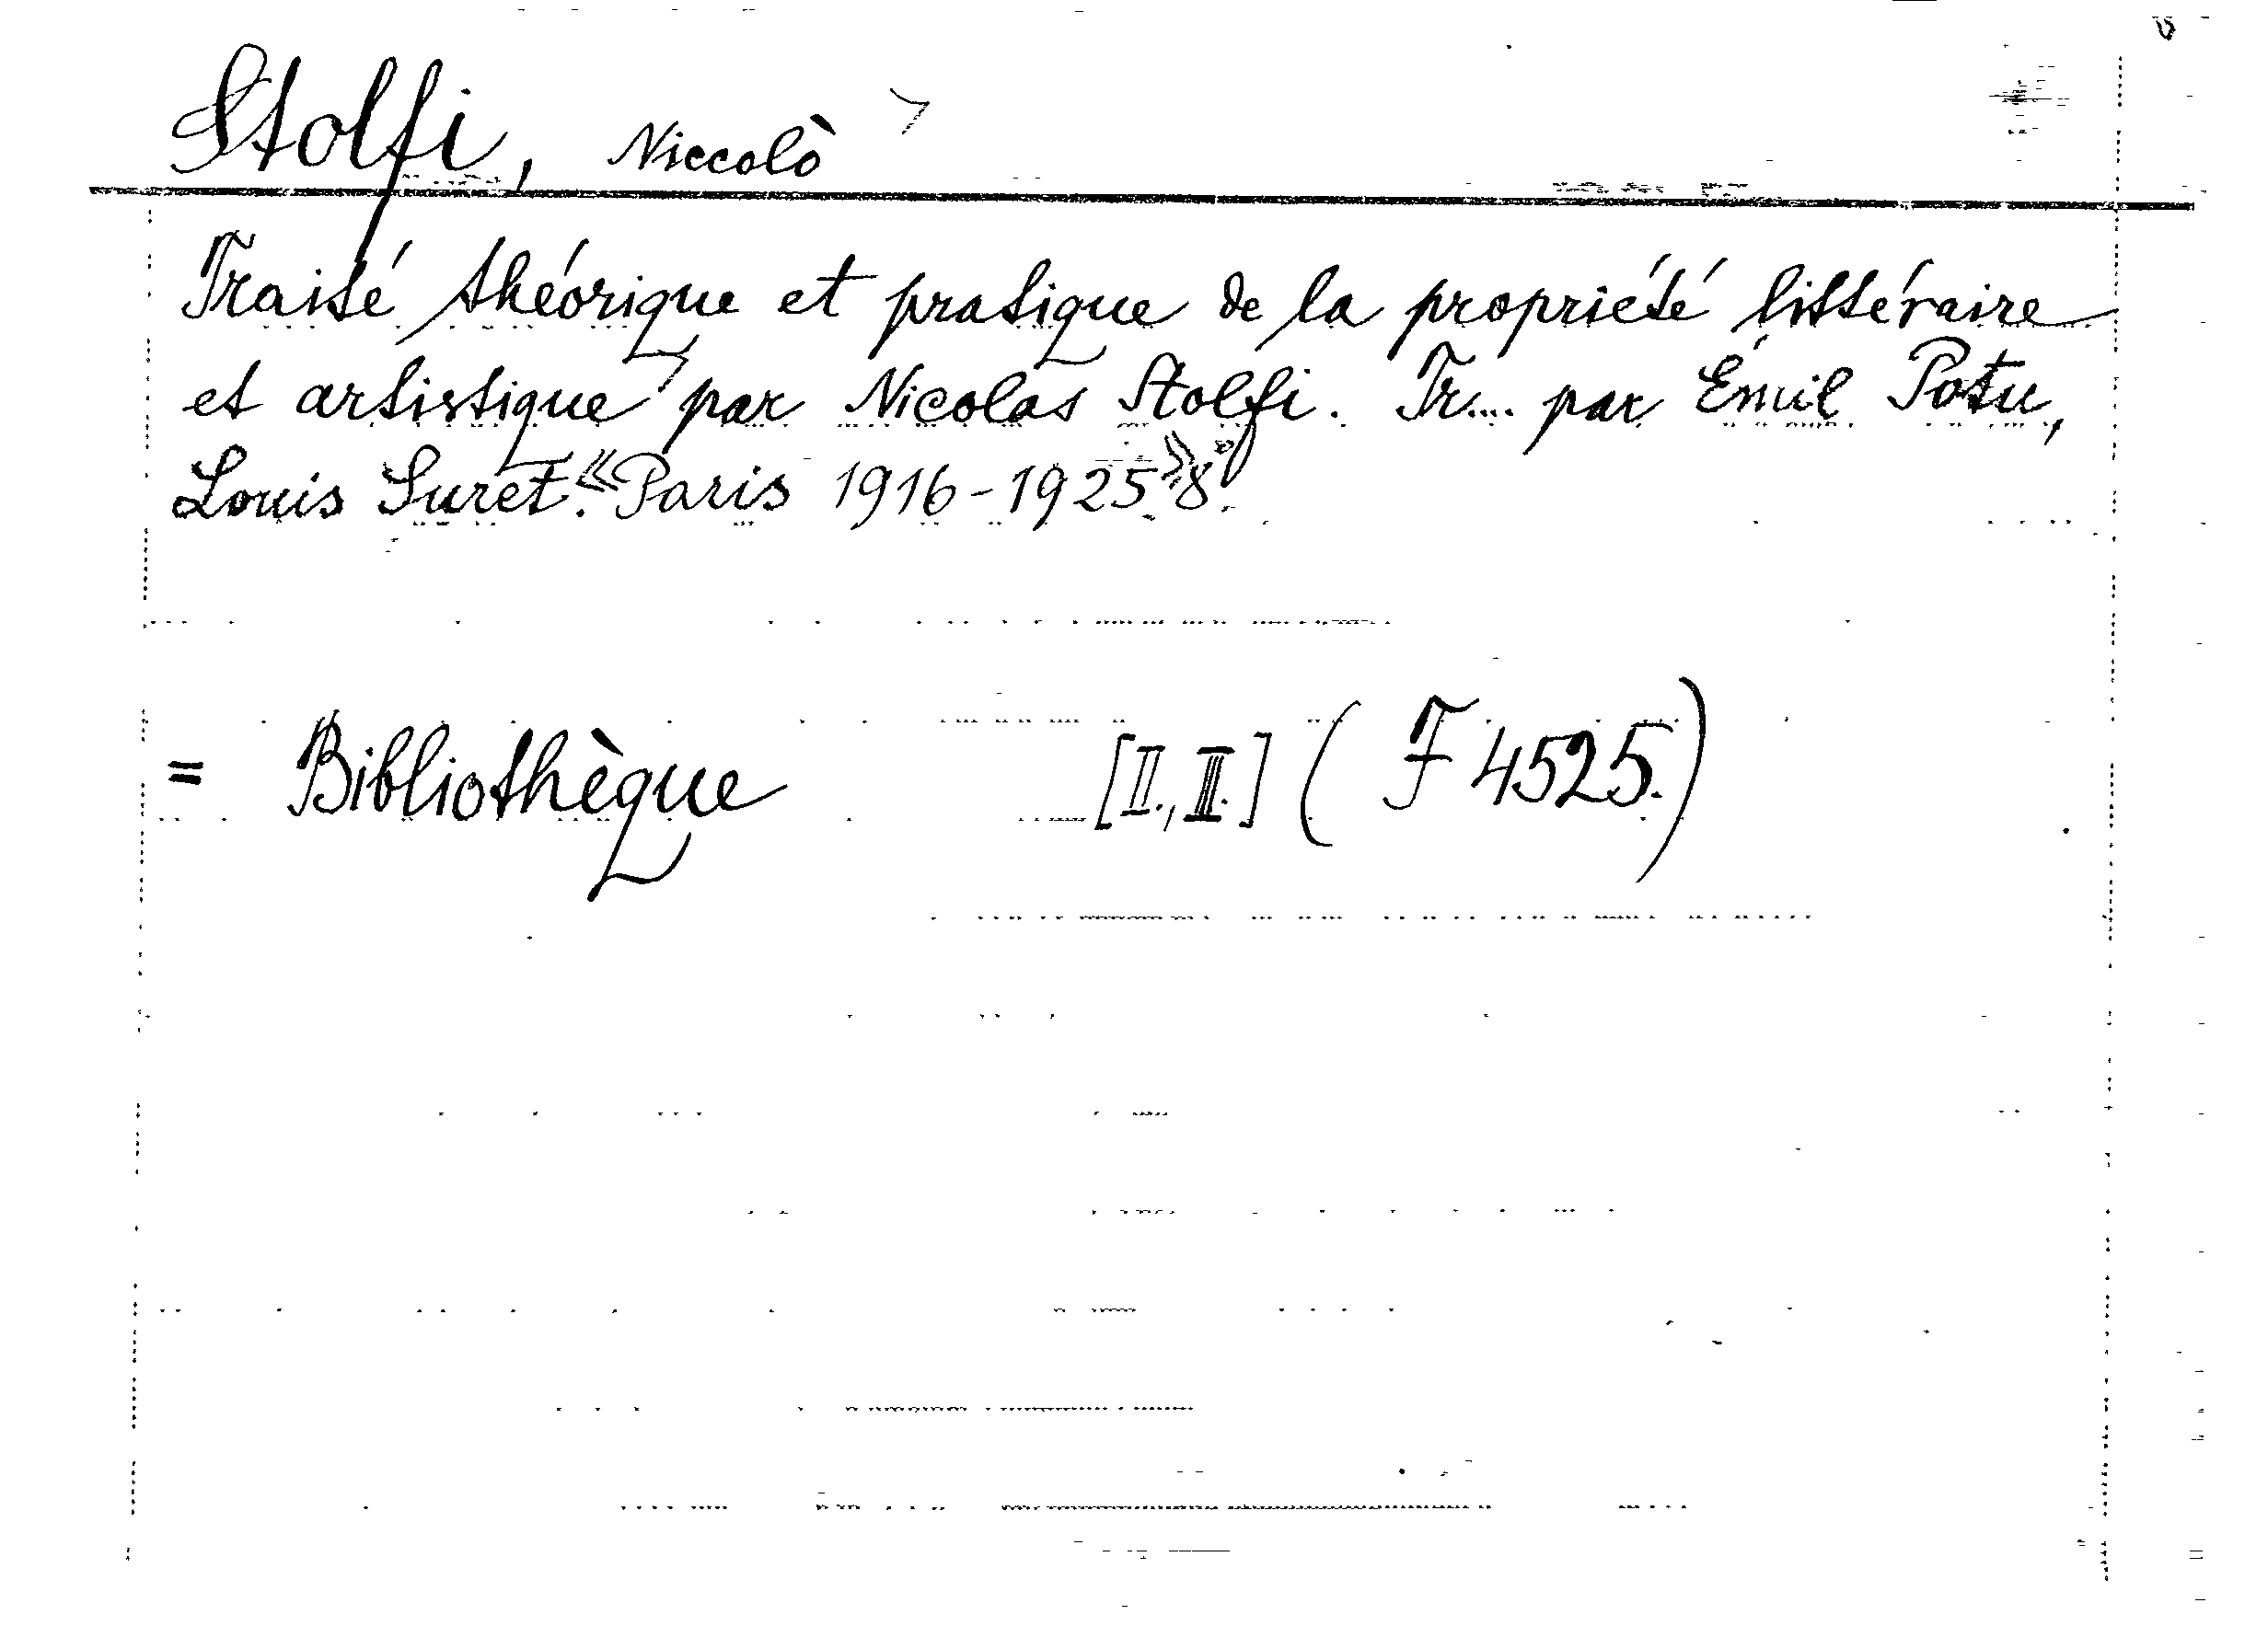 Stolfi, Niccolò
Traité théorique et pratique de la propriété littéraire
et artistique par Nicolas Stolfi. Tr.... par Émil Potu,
Louis Suret. «Paris 1916-1925» 8°.
= Bibliothèque [II., III.] (F 4525.)